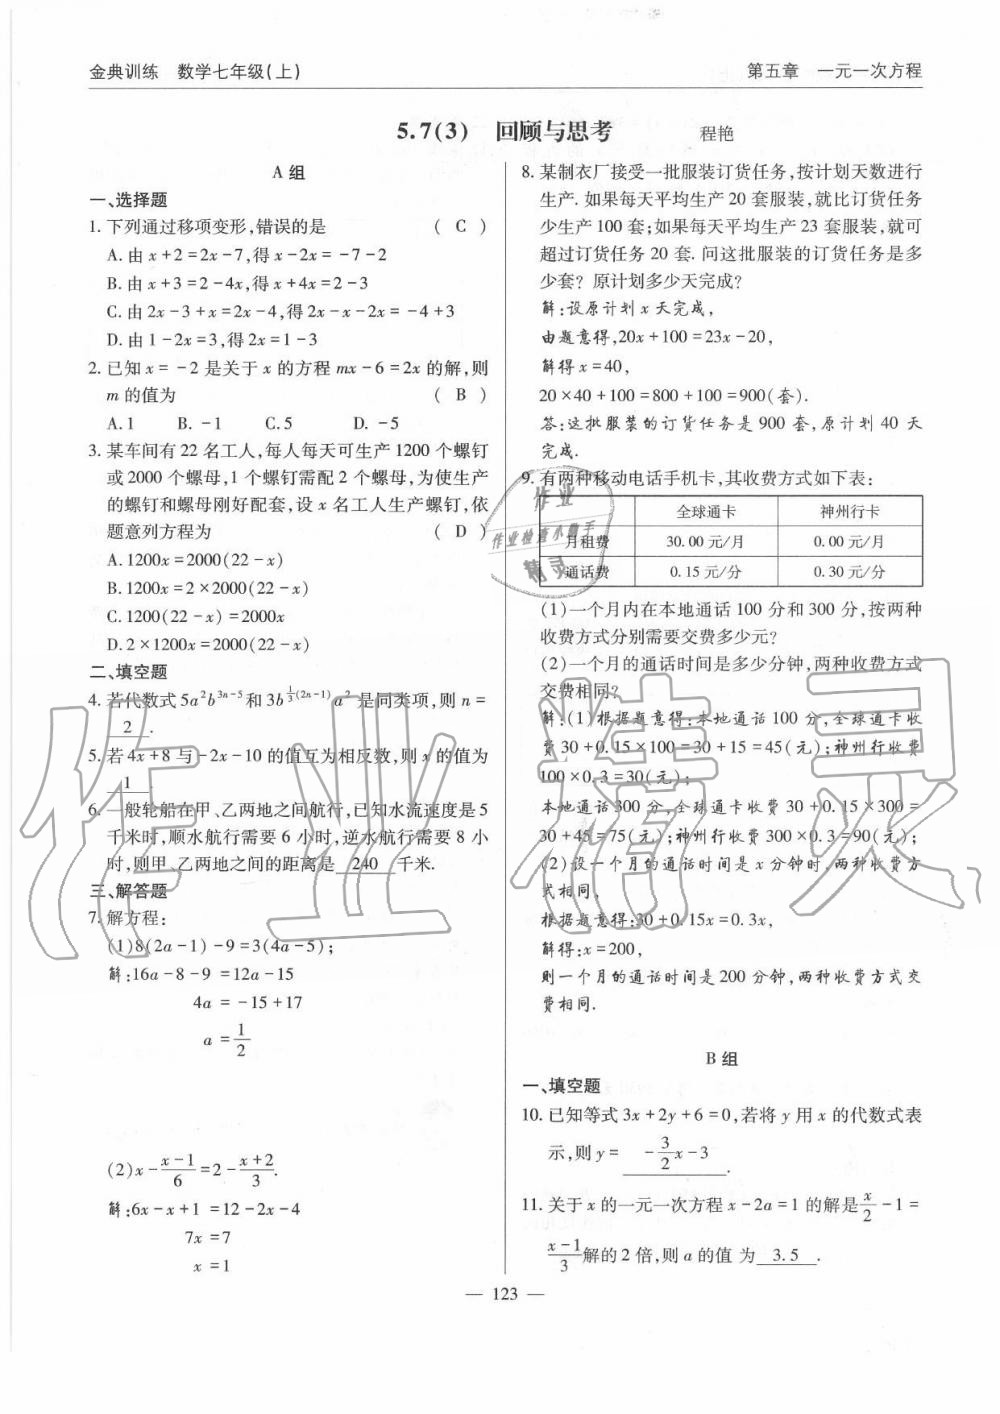 金典训练　数学七年级(上)
第五章　一元一次方程
5.7(3)　回顾与思考　程艳
A组
一、选择题
1. 下列通过移项变形,错误的是　( C )
A. 由 x+2=2x-7,得 x-2x=-7-2
B. 由 x+3=2-4x,得 x+4x=2-3
C. 由 2x-3+x=2x-4,得 2x-x-2x=-4+3
D. 由 1-2x=3,得 2x=1-3
2. 已知 x=-2 是关于 x 的方程 mx-6=2x 的解,则
m 的值为　( B )
A. 1　B. -1　C. 5　D. -5
3. 某车间有 22 名工人,每人每天可生产 1200 个螺钉
或 2000 个螺母,1 个螺钉需配 2 个螺母,为使生产
的螺钉和螺母刚好配套,设 x 名工人生产螺钉,依
题意列方程为　( D )
A. 1200x=2000(22-x)
B. 1200x=2×2000(22-x)
C. 1200(22-x)=2000x
D. 2×1200x=2000(22-x)
二、填空题
4. 若代数式 5a²b^{3n-5} 和 3b^{\frac{1}{3}(2n-1)}a² 是同类项,则 n=
2 .
5. 若 4x+8 与 -2x-10 的值互为相反数,则 x 的值为
1 .
6. 一般轮船在甲、乙两地之间航行,已知水流速度是 5
千米时,顺水航行需要 6 小时,逆水航行需要 8 小
时,则甲、乙两地之间的距离是 240 千米.
三、解答题
7. 解方程:
(1)8(2a-1)-9=3(4a-5);
解:16a-8-9=12a-15
4a=-15+17
a=\frac{1}{2}
(2)x-\frac{x-1}{6}=2-\frac{x+2}{3}.
解:6x-x+1=12-2x-4
7x=7
x=1
8. 某制衣厂接受一批服装订货任务,按计划天数进行
生产. 如果每天平均生产 20 套服装,就比订货任务
少生产 100 套;如果每天平均生产 23 套服装,就可
超过订货任务 20 套. 问这批服装的订货任务是多
少套? 原计划多少天完成?
解:设原计划 x 天完成,
由题意得,20x+100=23x-20,
解得 x=40,
20×40+100=800+100=900(套).
答:这批服装的订货任务是 900 套,原计划 40 天
完成.
9. 有两种移动电话手机卡,其收费方式如下表:
全球通卡　神州行卡
月租费　30.00 元/月　0.00 元/月
通话费　0.15 元/分　0.30 元/分
(1)一个月内在本地通话 100 分和 300 分,按两种
收费方式分别需要交费多少元?
(2)一个月的通话时间是多少分钟,两种收费方式
交费相同?
解:(1)根据题意得:本地通话 100 分,全球通卡收
费 30+0.15×100=30+15=45(元);神州行收费
100×0.3=30(元);
本地通话 300 分,全球通卡收费 30+0.15×300=
30+45=75(元);神州行收费 300×0.3=90(元);
(2)设一个月的通话时间是 x 分钟时,两种收费方
式相同,
根据题意得:30+0.15x=0.3x,
解得:x=200,
则一个月的通话时间是 200 分钟,两种收费方式交
费相同.
B组
一、填空题
10. 已知等式 3x+2y+6=0,若将 y 用 x 的代数式表
示,则 y= -\frac{3}{2}x-3 .
11. 关于 x 的一元一次方程 x-2a=1 的解是 \frac{x}{2}-1=
\frac{x-1}{3} 解的 2 倍,则 a 的值 为 3.5 .
— 123 —
作业
作业检查小助手
精灵
作业精灵